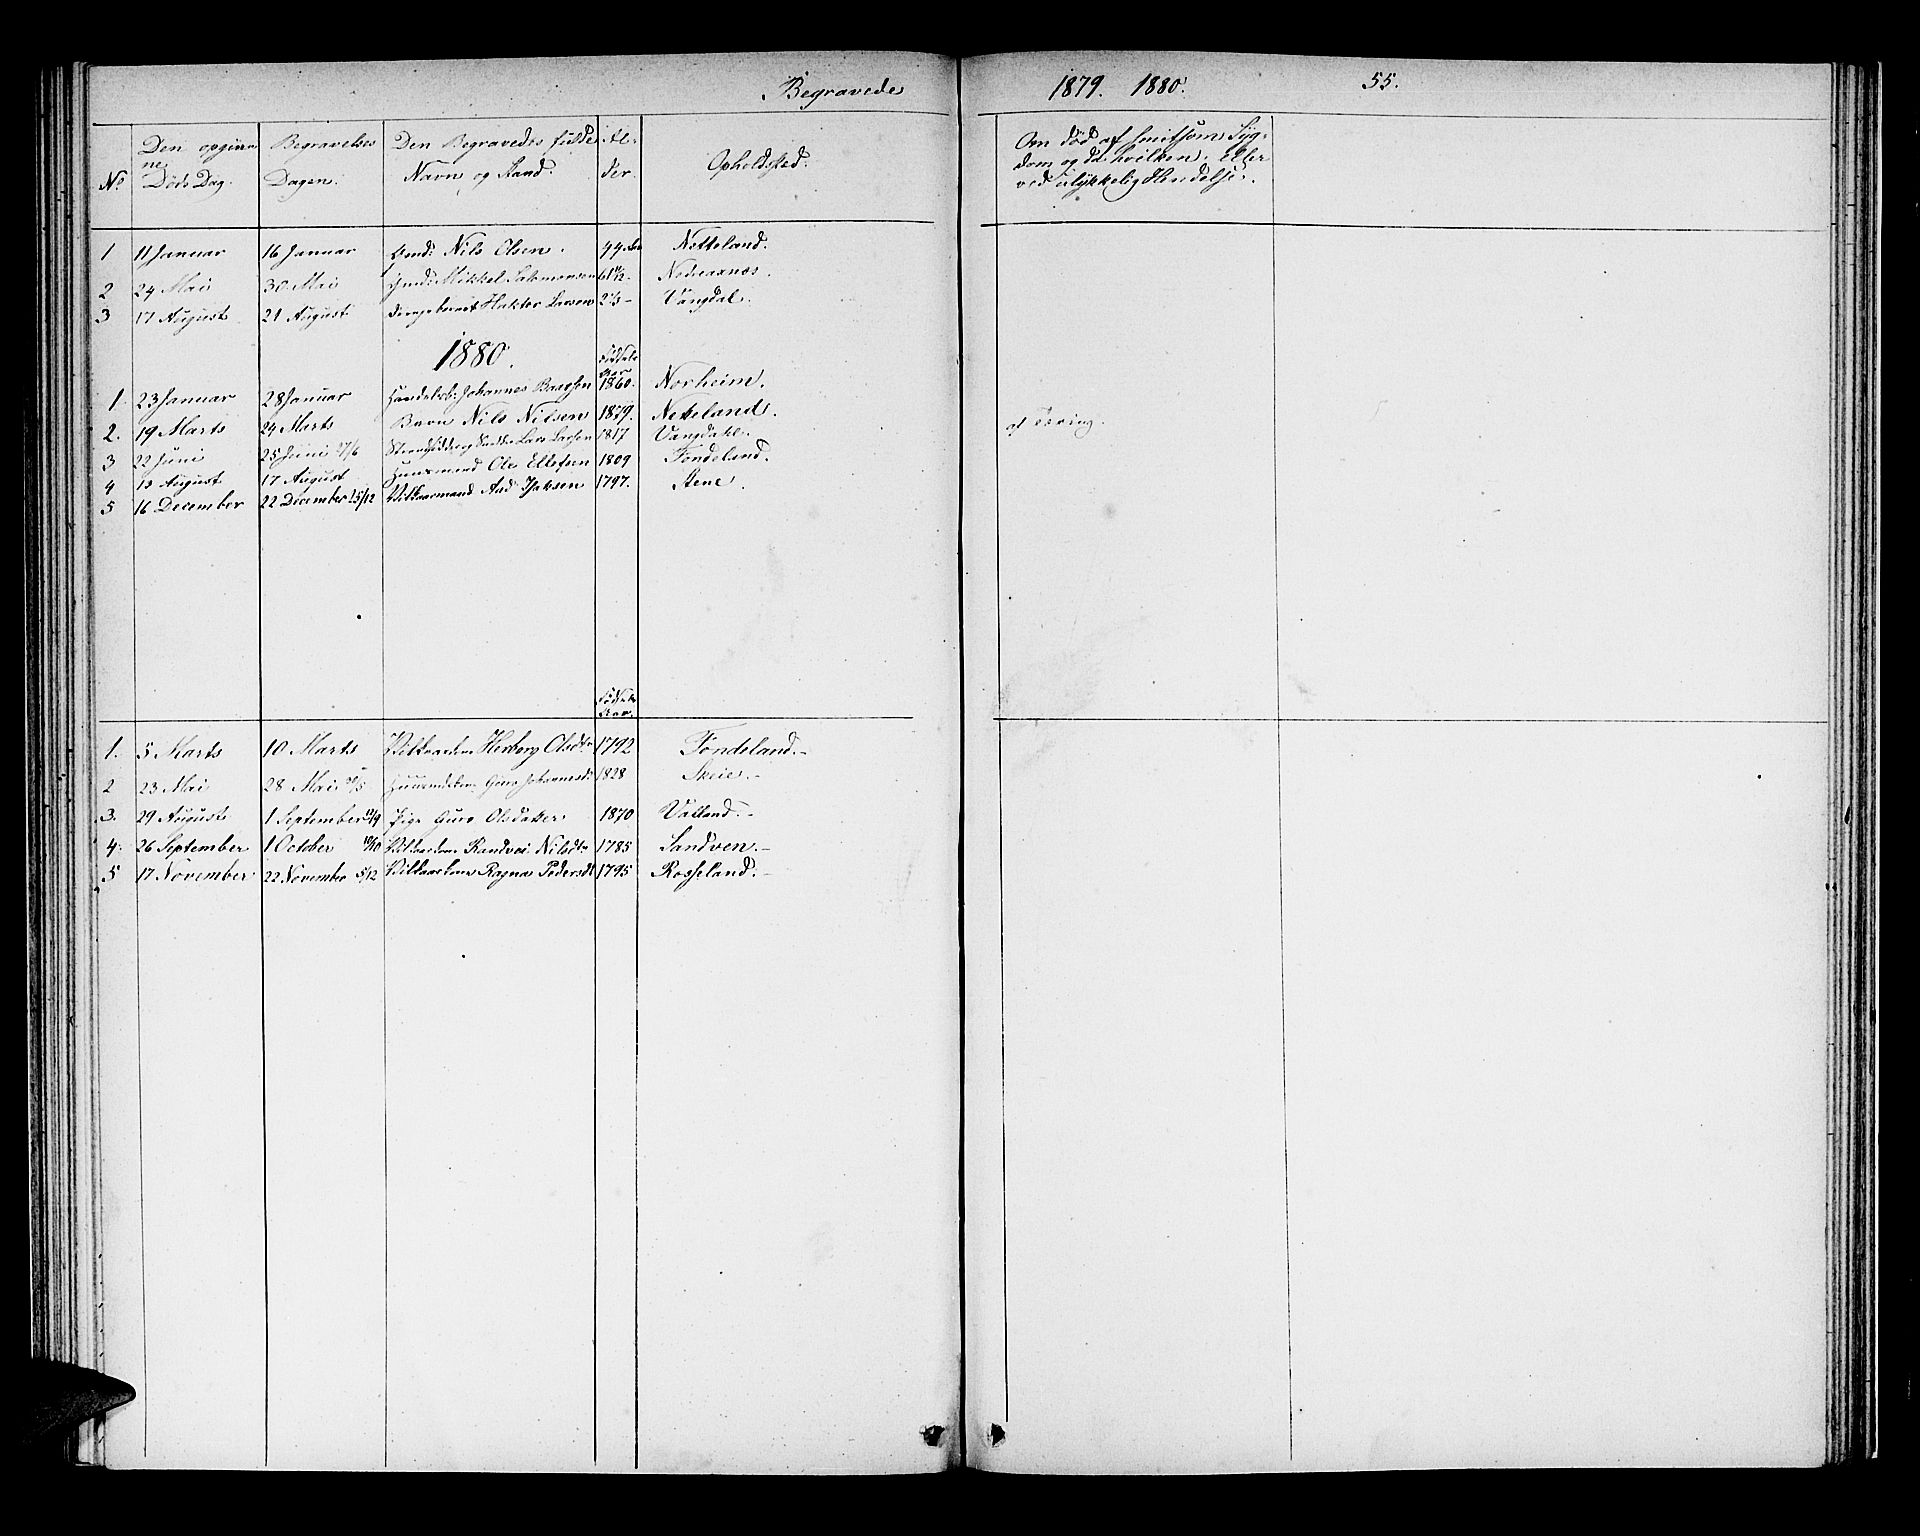 Begravede 1879. 1880. 55.
No
Den opgivne Døds Dag.
Begravelses Dagen.
Den Begravedes fulde Navn og Stand.
Alder.
Opholdsted.
Om død af smitsom Sygdom og da hvilken. Eller ved ulykkelig Hændelse.
1 11 Januar 16 Januar Nils Olsen. 44 Netteland.
2 24 Mai 30 Mai Mikkel Salomonsen 61 Nedreaxnes.
3 17 August 21 August Hektor Larsen 2 Vangdal.
1880.
Fødsels Aar
1 23 Januar 28 Januar Johannes Baagsen 1860. Norheim.
2. 19 Marts 24 Marts Barn Nils Nilsen 1879. Netteland. af Tæring.
3 22 Juni 25 Juni 27/6 Lars Larsen 1817 Vangdahl.
4 12 August 17 August Huusmand Ole Ellefsen 1809 Tøndeland.
5 16 December 22 December 25/12 Vilkaarmand Aad Isaksen 1797. Stene.
Fødsels Aar.
1. 5 Marts 10 Marts Herborg Olsdtr 1792 Tøndeland.-
2 23 Mai 28 Mai Guro Johannesd. 1828 Skeie.-
3. 29 August 1 September Pige Guro Olsdatter 1870 Valland.-
4. 26 September 1 October 10/10 Randvei Nilsdtr 1785 Sandven.-
5 17 November 22 November 5/12 Ragna Pedersdt 1795 Rosseland.-